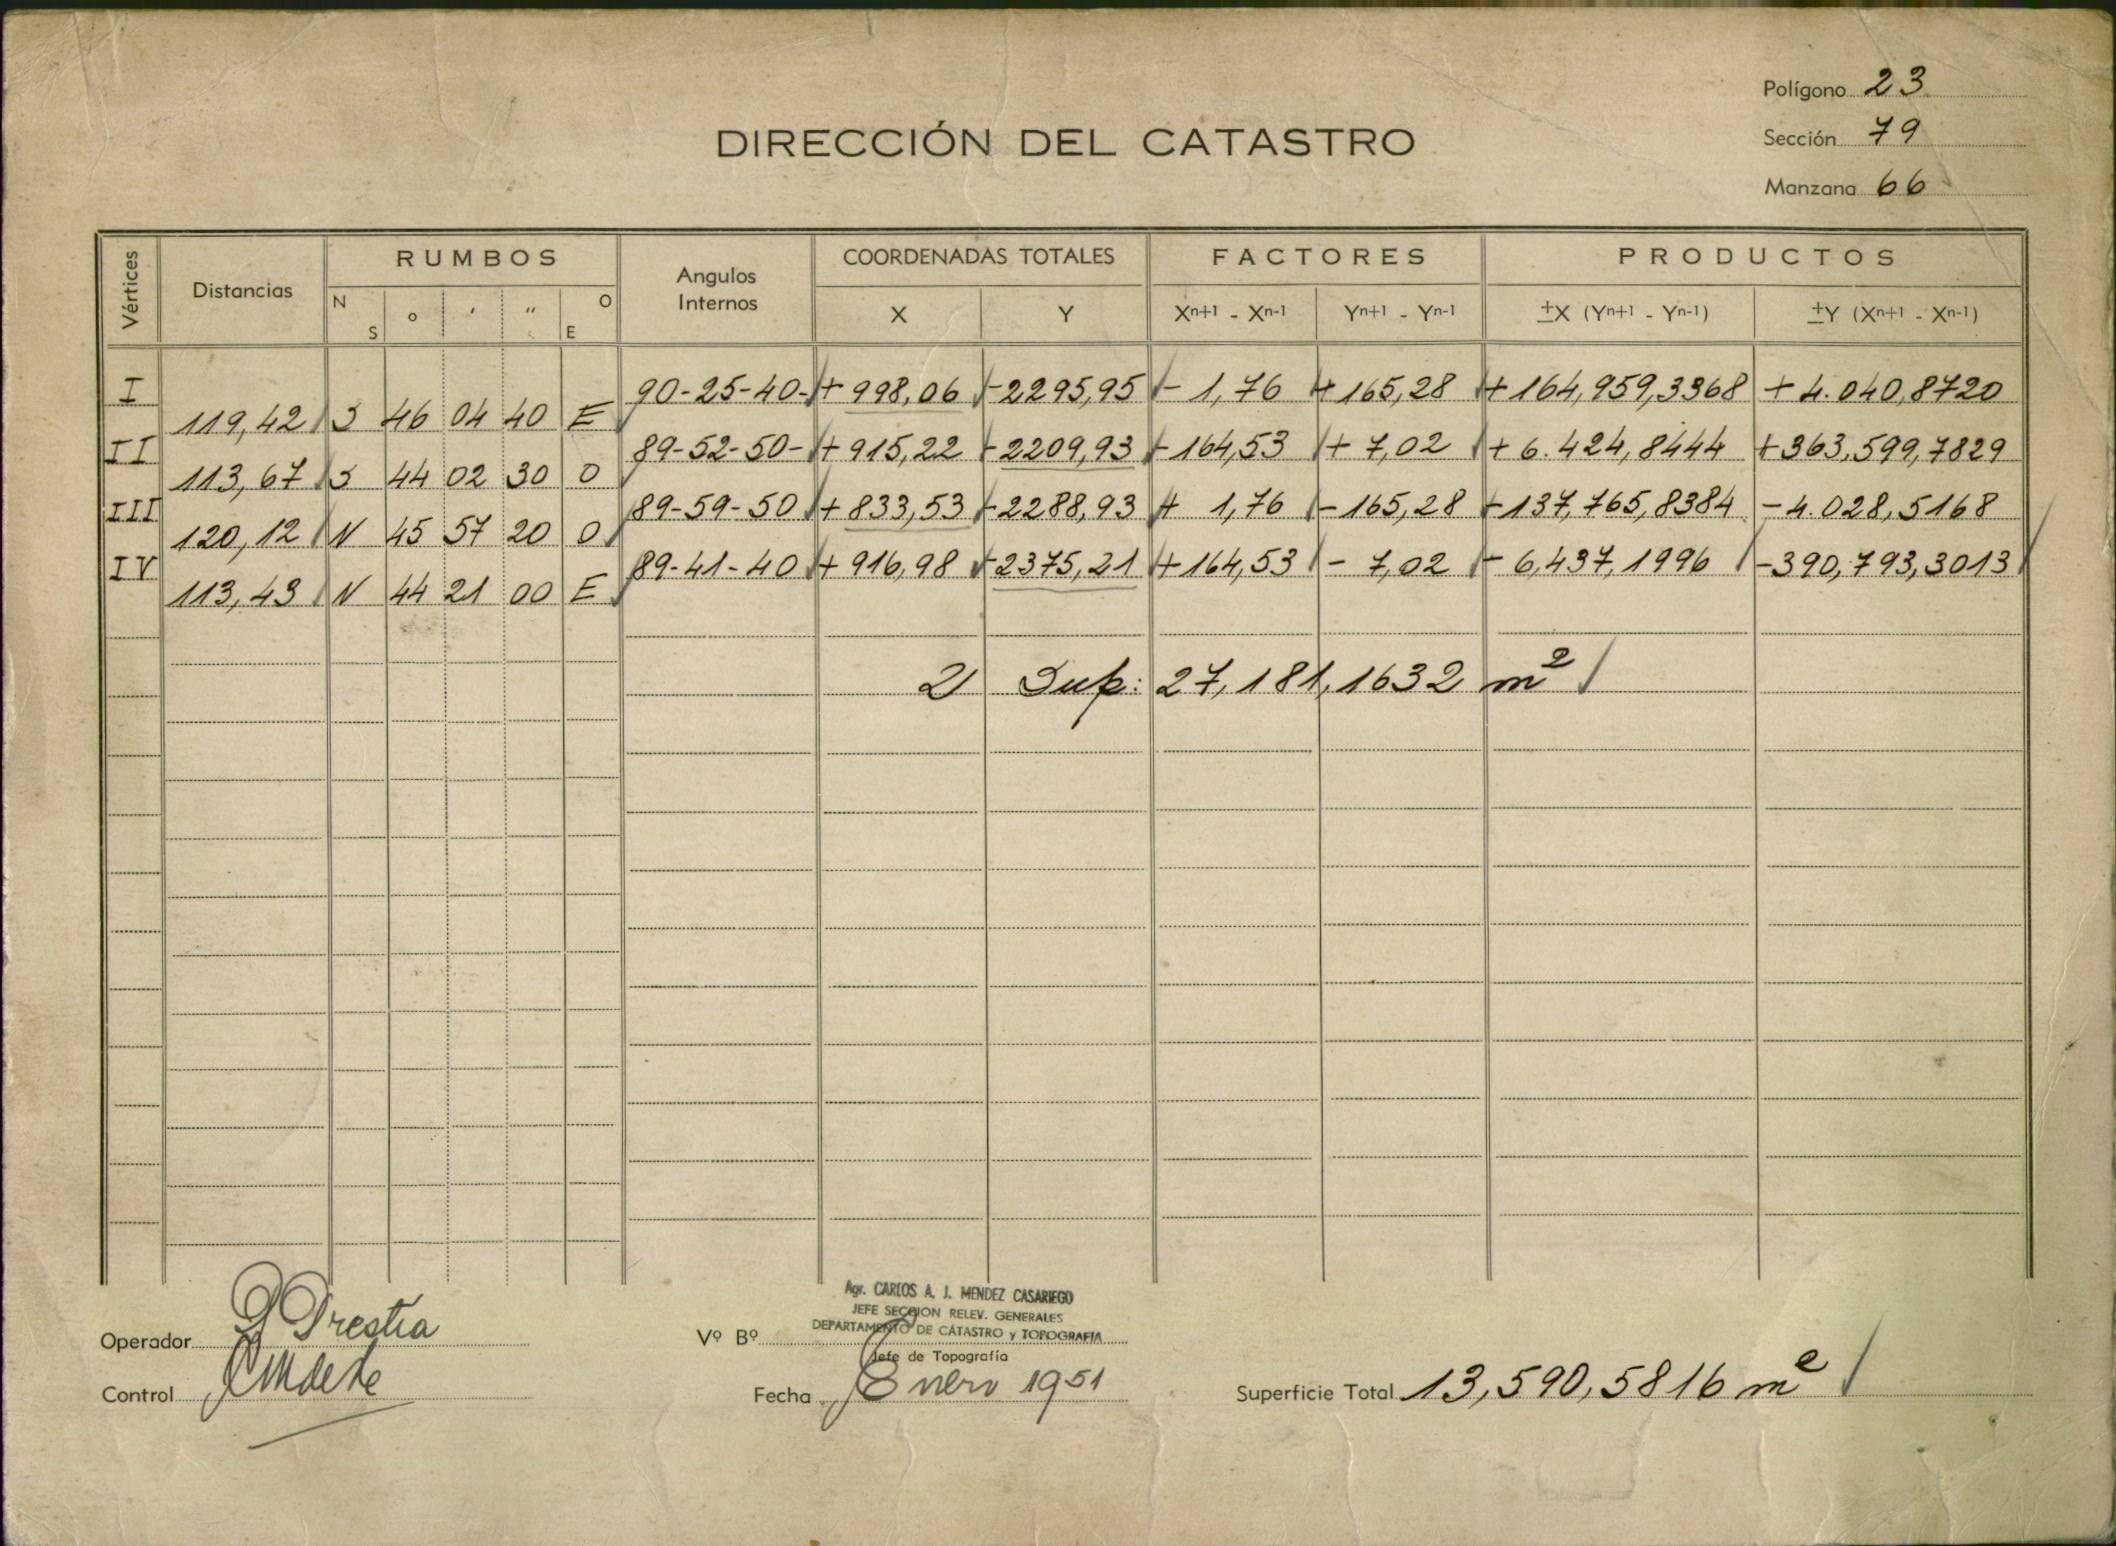 Polígono 23
DIRECCIÓN DEL CATASTRO
Sección 79
Manzana 66
Vértices Distancias RUMBOS Angulos Internos COORDENADAS TOTALES FACTORES PRODUCTOS
N S o ' " O E X Y Xn+1 - Xn-1 Yn+1 - Yn-1 ±X (Yn+1 - Yn-1) ±Y (Xn+1 - Xn-1)
I 90-25-40- + 998,06 -2295,95 - 1,76 +165,28 +164,959,3368 + 4.040,8720
119,42 S 46 04 40 E
II 89-52-50- + 915,22 -2209,93 -164,53 + 7,02 + 6.424,8444 +363,599,7829
113,67 S 44 02 30 O
III 89-59-50 + 833,53 -2288,93 + 1,76 -165,28 -137,765,8384 - 4.028,5168
120,12 N 45 57 20 O
IV 89-41-40 + 916,98 -2375,21 +164,53 - 7,02 - 6,437,1996 -390,793,3013
113,43 N 44 21 00 E
2 Sup: 27,181,1632 m2
Agr. CARLOS A. J. MENDEZ CASARIEGO
JEFE SECCION RELEV. GENERALES
DEPARTAMENTO DE CATASTRO y TOPOGRAFIA
Operador Vº Bº
Jefe de Topografía
Control Fecha Enero 1951 Superficie Total 13,590,5816 m2